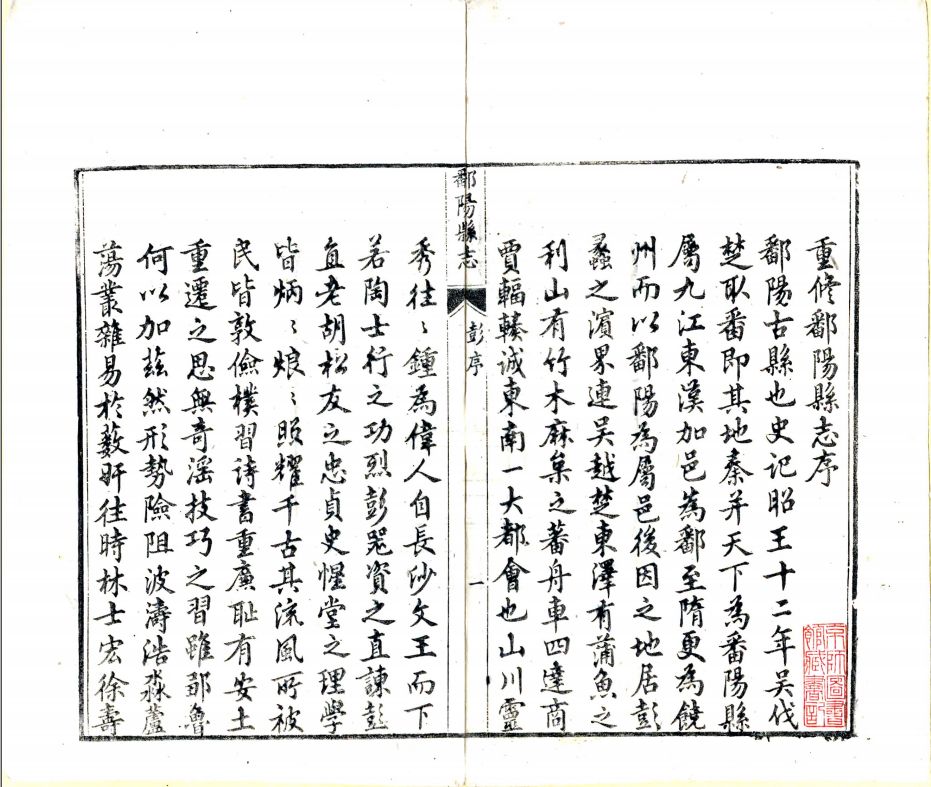 重修鄱陽縣志序
鄱陽古縣也史記昭王十二年吳伐
楚取番即其地秦并天下為番陽縣
屬九江東漢加邑為鄱至隋更為饒
州而以鄱陽為屬邑後因之地居彭
蠡之濱界連吳越楚東澤有蒲魚之
利山有竹木麻枲之蕃舟車四達商
賈輻輳誠東南一大都會也山川靈
鄱陽縣志
彭序
一
秀往〻鍾為偉人自長沙文王而下
若陶士行之功烈彭器資之直諫彭
直老胡松友之忠貞史惺堂之理學
皆炳〻烺〻照耀千古其流風所被
民皆敦儉樸習詩書重廉恥有安土
重遷之思無奇淫技巧之習雖鄒魯
何以加茲然形勢險阻波濤浩淼蘆
蕩叢雜易於藪奸往時林士宏徐壽